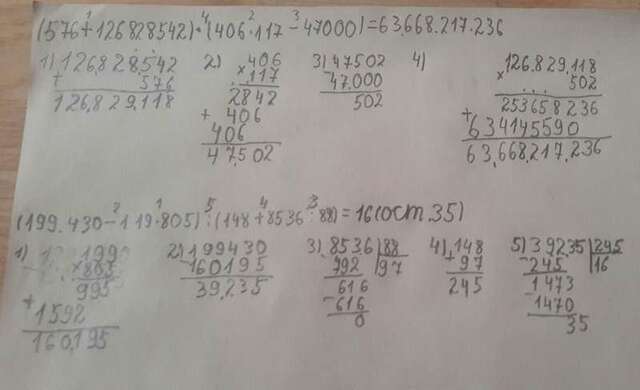 (576+126828542)·(406·117-47000)=63.668.217.236
1) 126.828.542
+ 576
126.829.118
2) ×406
117
2842
+ 406
406
47.502
3) 47502
-47.000
502
4) ×126.829.118
502
253658236
+634145590
63.668.217.236
(199.430-119·805):(148+8536:88)=16(ост.35)
1) 199
×805
995
+1592
160.195
2) 199430
-160195
39.235
3) 8536 88
-792 97
616
-616
0
4) 148
+97
245
5) 39235 245
-245 16
1473
-1470
35